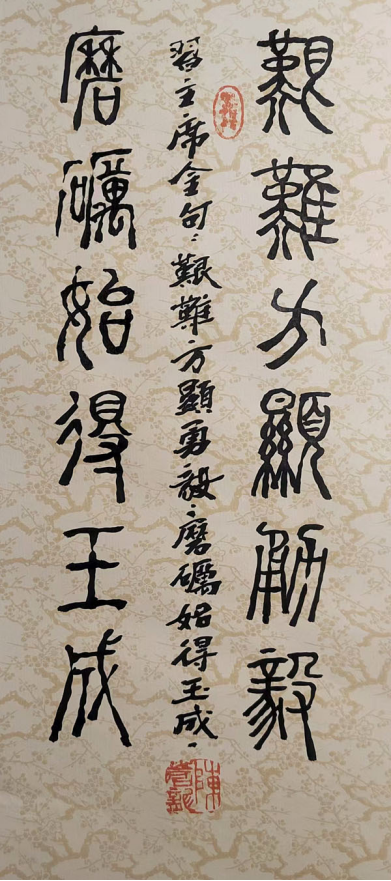 艱難方顯勇毅
磨礪始得玉成
習主席金句：艱難方顯勇毅，磨礪始得玉成。